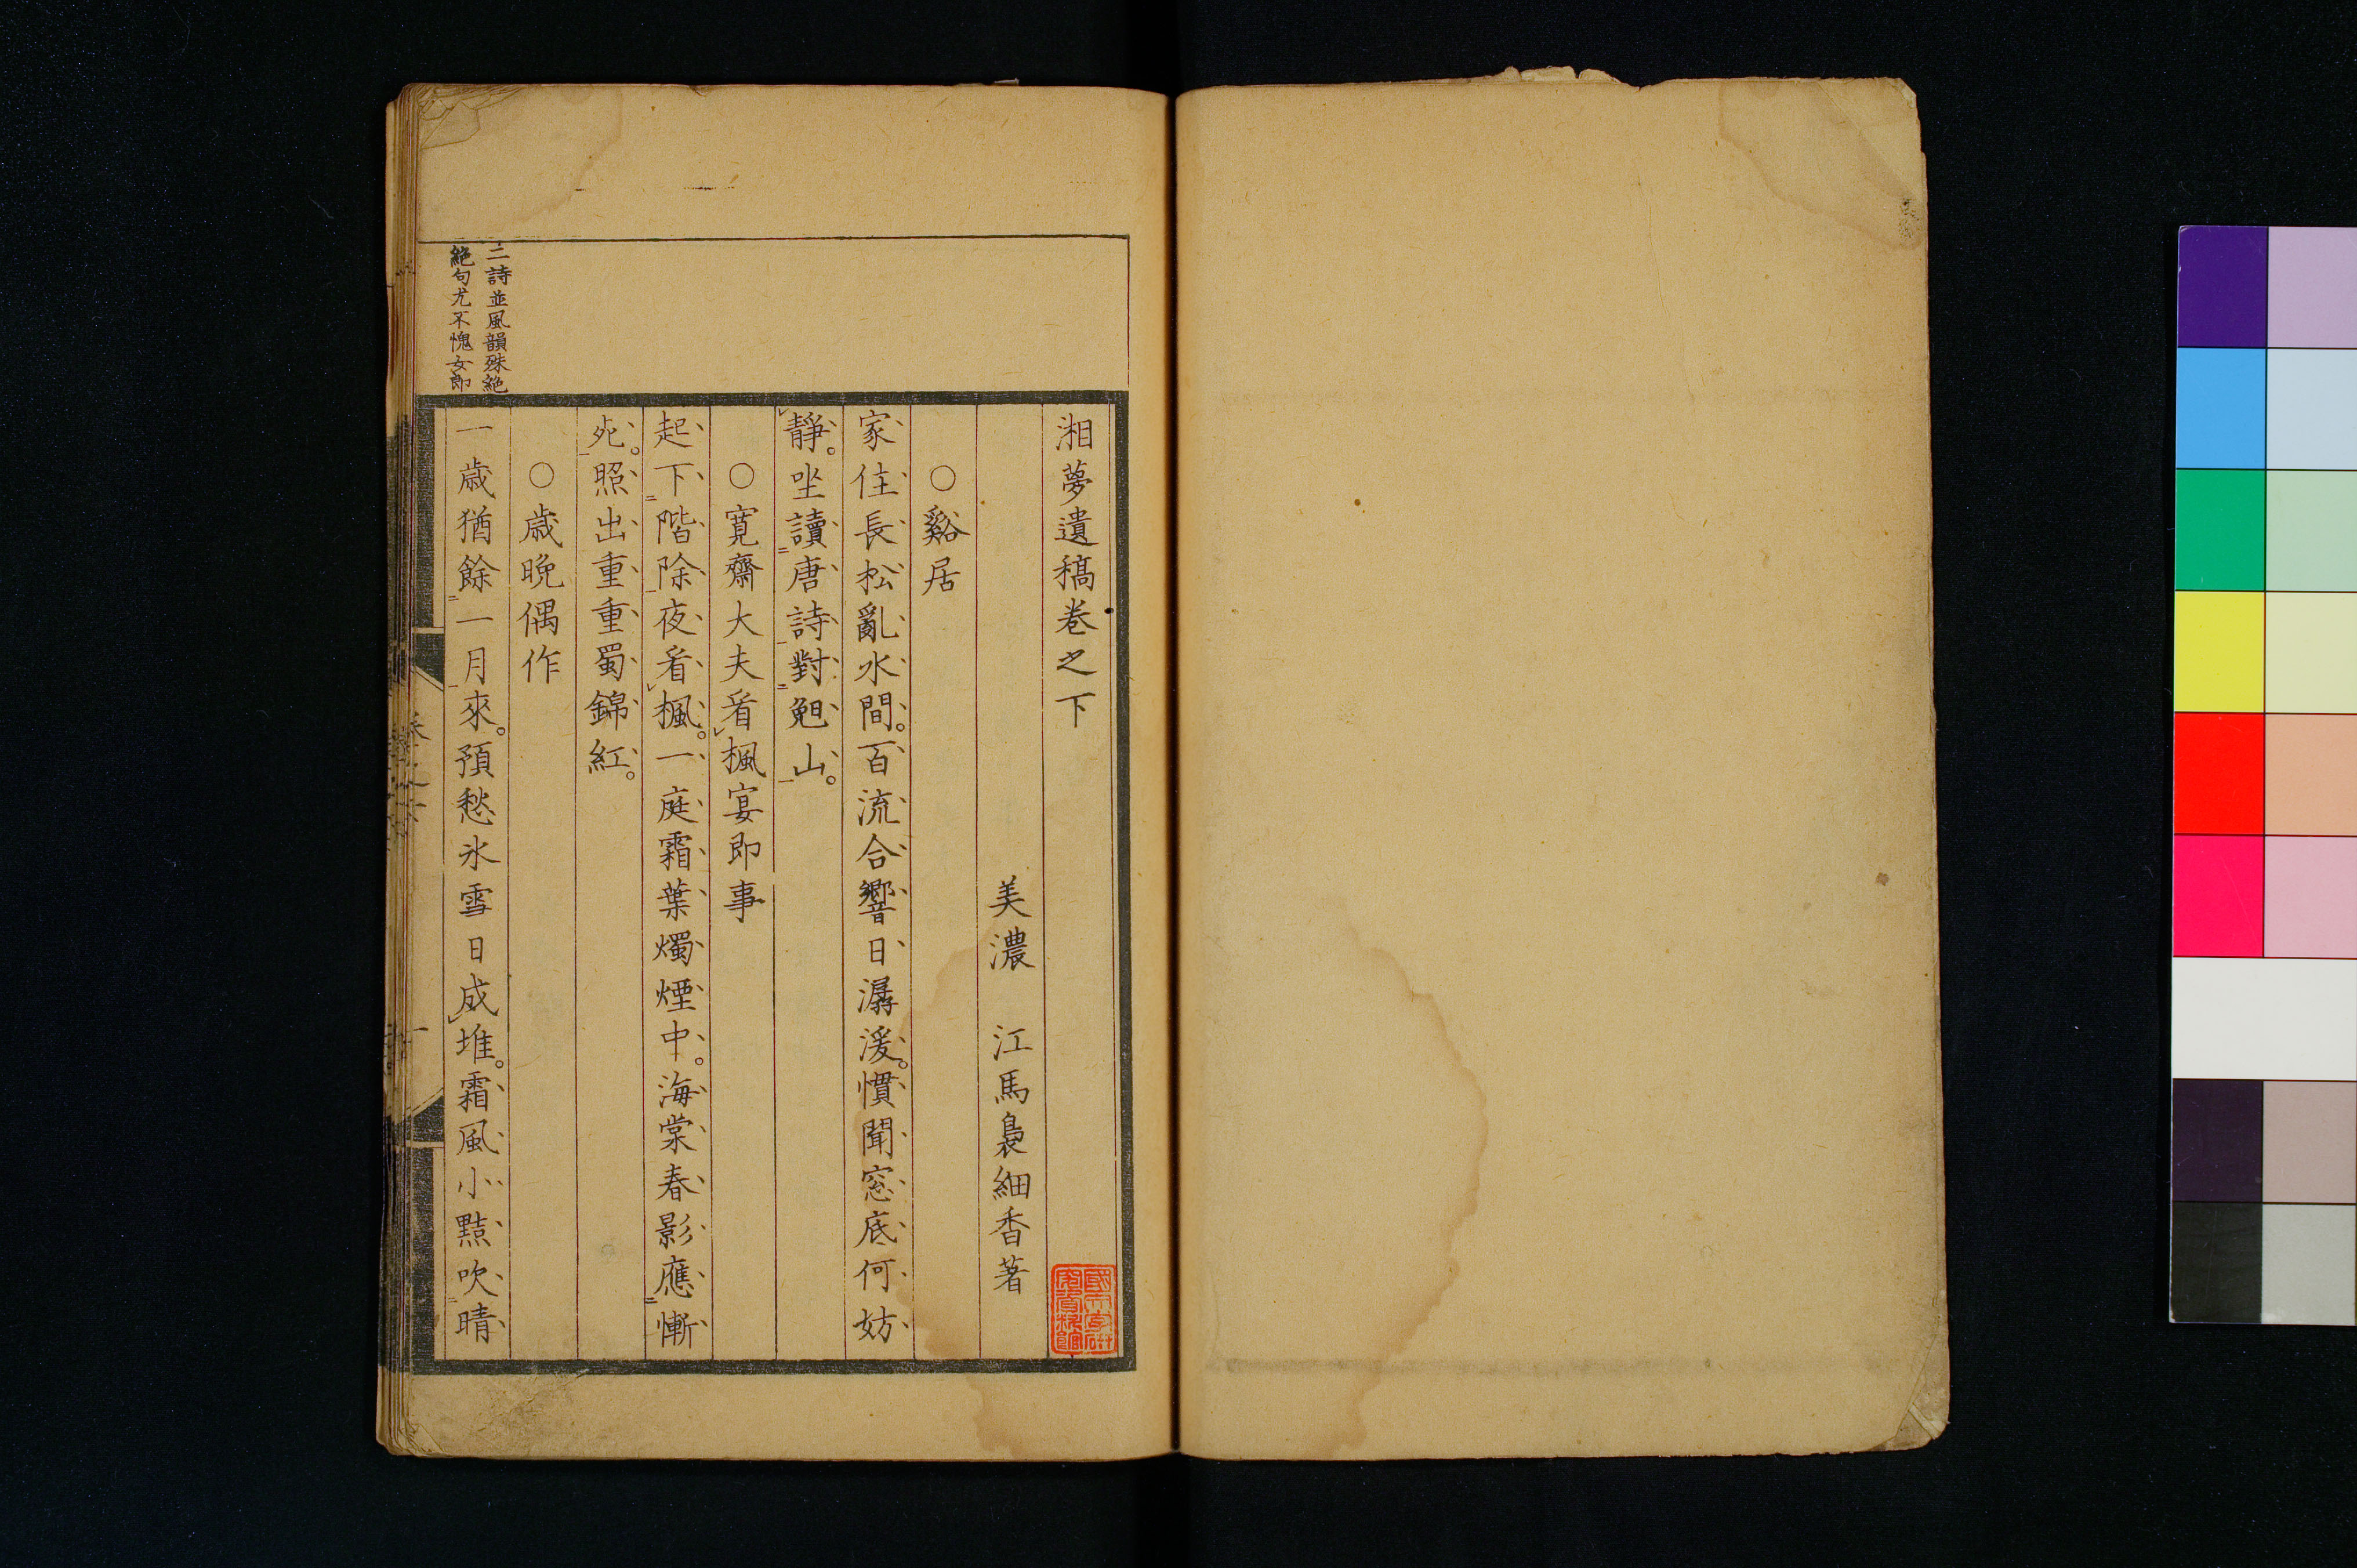 湘夢遺稿卷之下
美濃 江馬裊細香著
○谿居
家住長松亂水間。百流合響日潺湲。慣聞窓底何妨
靜。坐讀唐詩對兜山。
○寬齋大夫看楓宴即事
起下階除夜看楓。一庭霜葉燭煙中。海棠春影應慚
死。照出重重蜀錦紅。
○歲晚偶作
一歲猶餘一月來。預愁氷雪日成堆。霜風小㸃吹晴
二詩並風韻殊絶
絶句尤不愧女郎